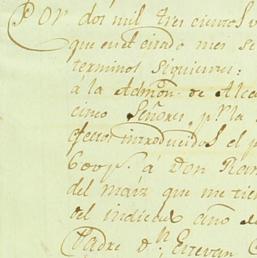 Por dos mil tres cientos v
que en el citado mes se
terminos siguientes:
a la Admon. de Alca
cinco Señores pr. la
efectos introducidos el p
600 ps. á Don Ram
del maiz que me tien
del indicado año de
Padre dn. Estevan C